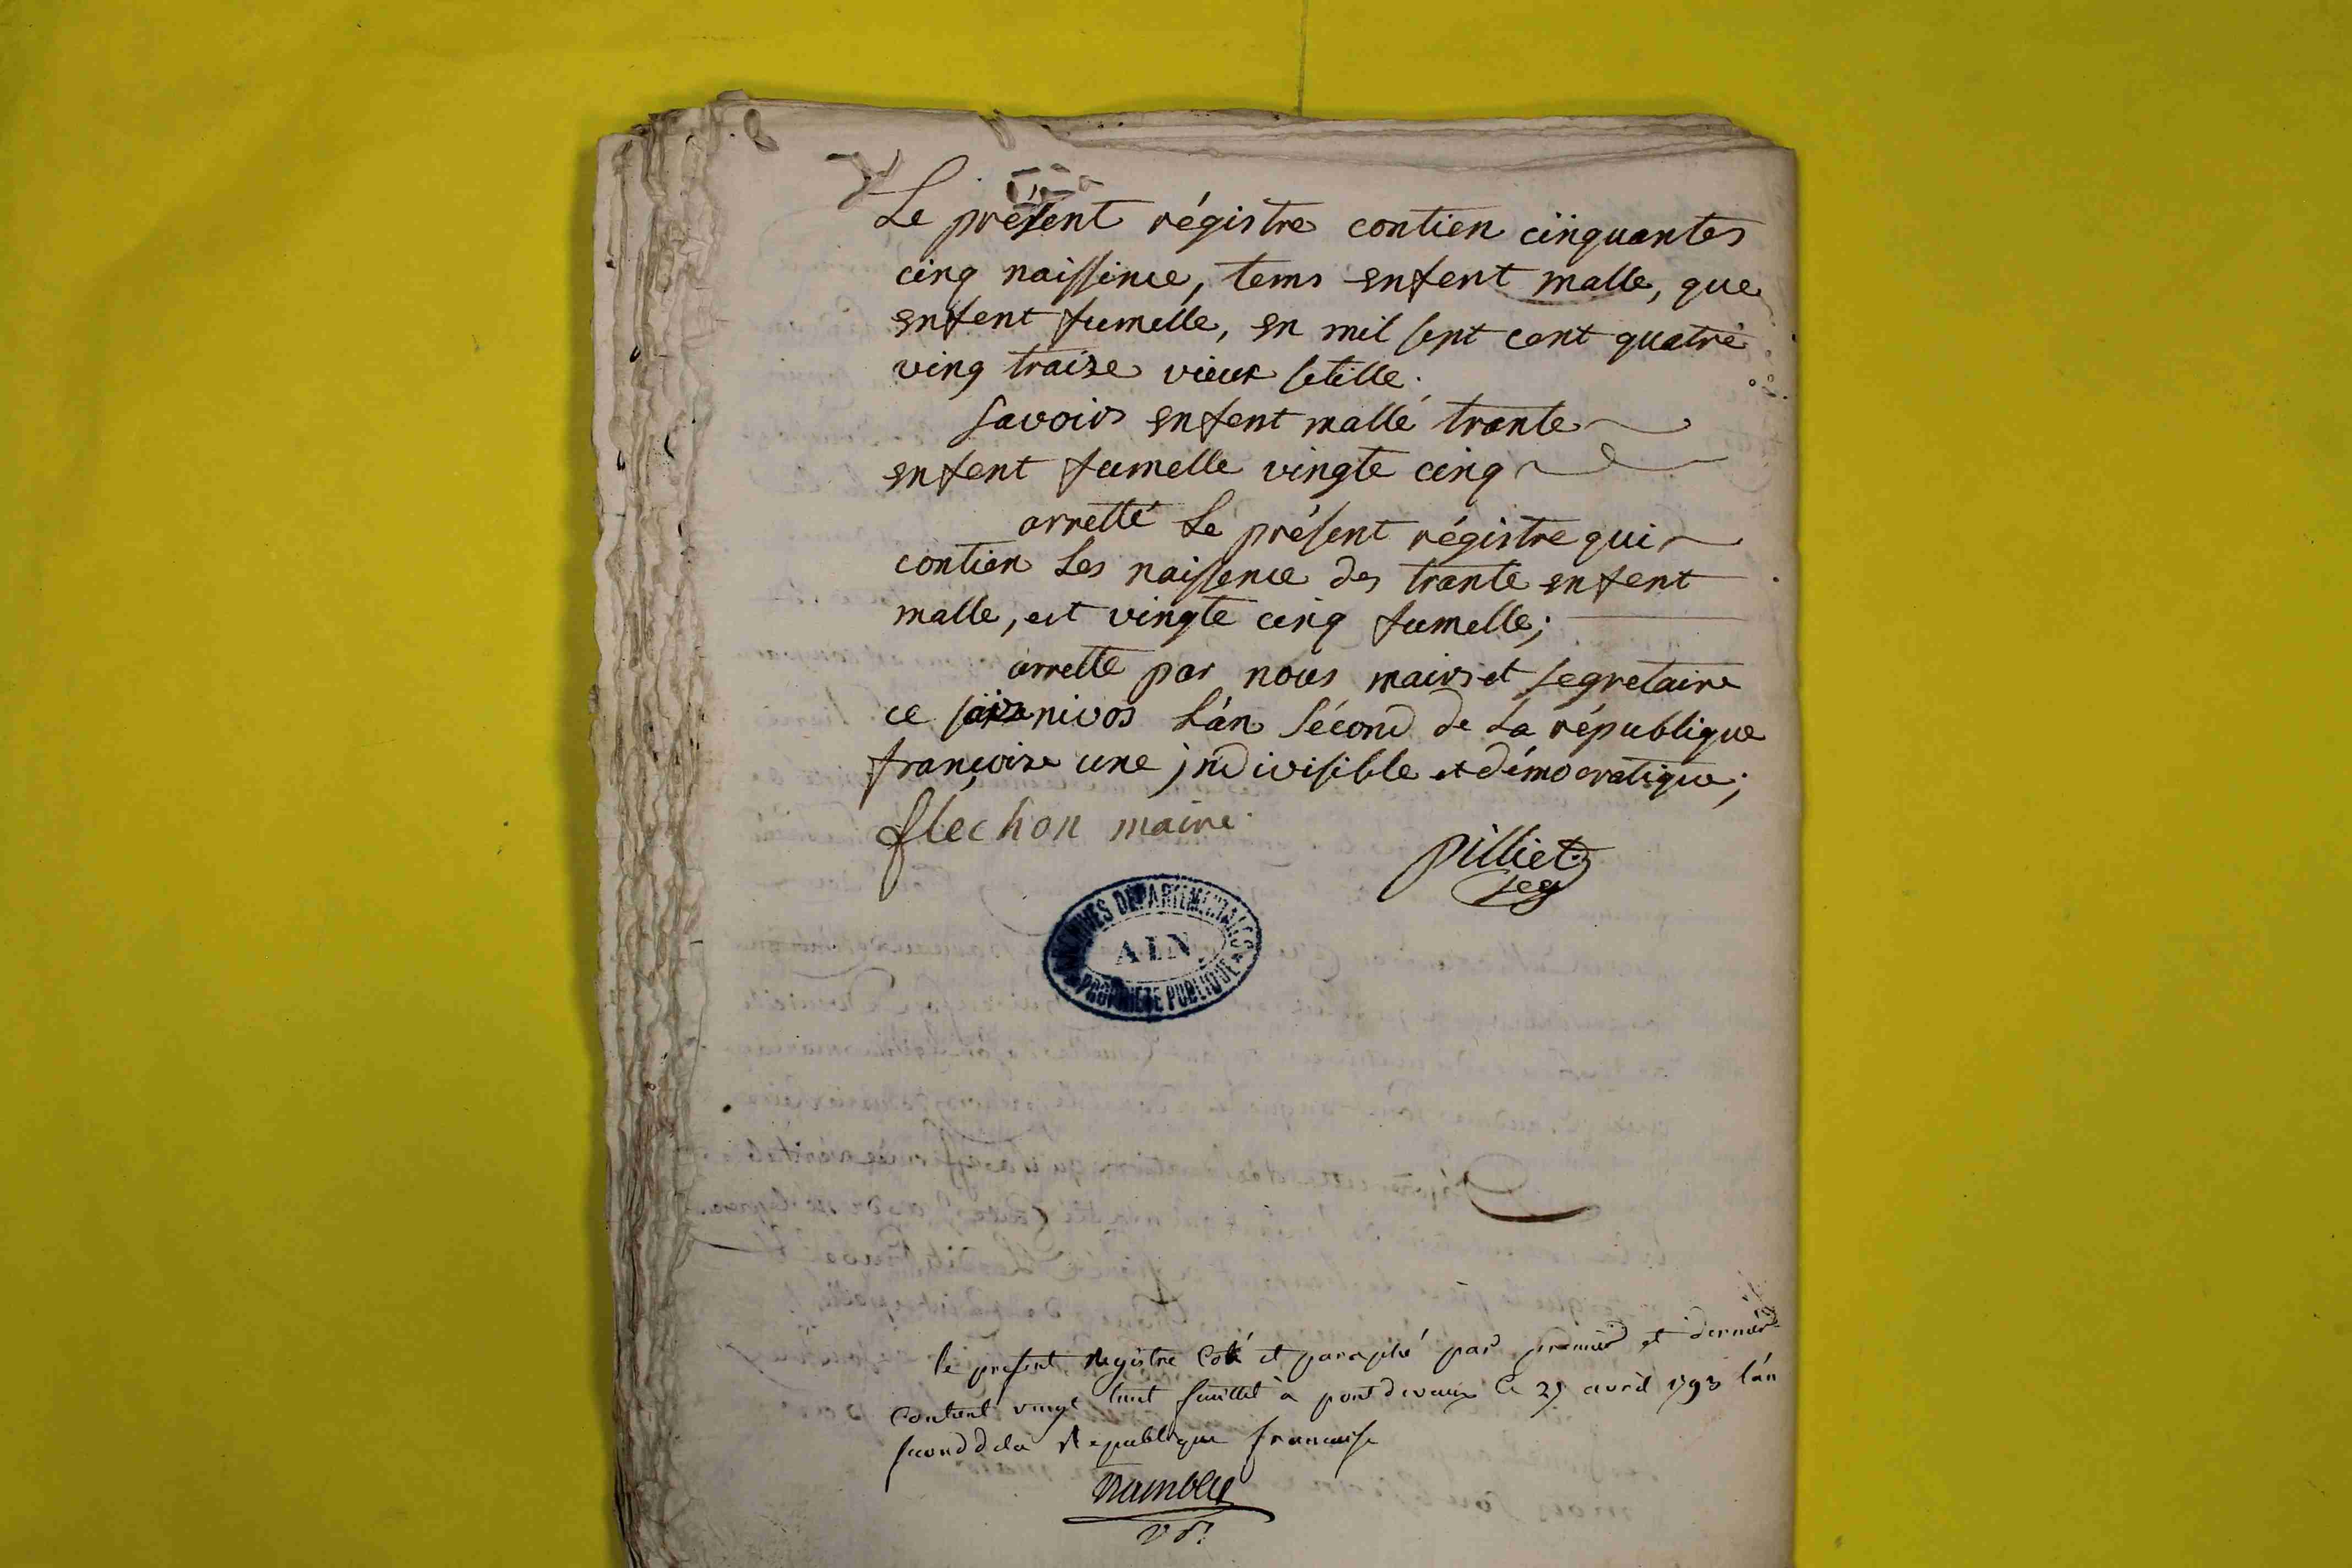 Le présent régistre contien cinquantes
cinq naissence, tems enfent malle, que
enfent fumelle, en mil sept cent quatre
ving traize vieux setille.
savoirs enfent malle trante
enfent fumelle vingte cinq
arretté Le présent régistre qui
contien Les naissence des trante enfent
malle, est vingte cinq fumelle;
arretté par nous mairs et segretaire
ce nivos L'an sécond de La république
françoise une jndivisible et démocratique;
flechon maire
pilliet
seg
ARCHIVES DEPARTEMENTALES
AIN
PROPRIETE PUBLIQUE
le present Registre Coté et paraphé par premier et dernier
Contient vingt huit feuillet à pontdevaux le avril 1793 l'an
second dela Republique francaise